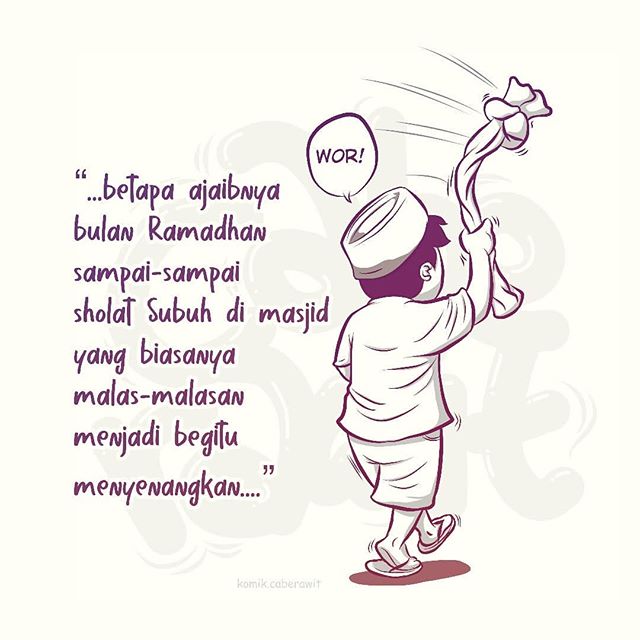 "...betapa ajaibnya
bulan Ramadhan
sampai-sampai
sholat Subuh di masjid
yang biasanya
malas-malasan
menjadi begitu
menyenangkan...."
WOR!
komik.caberawit